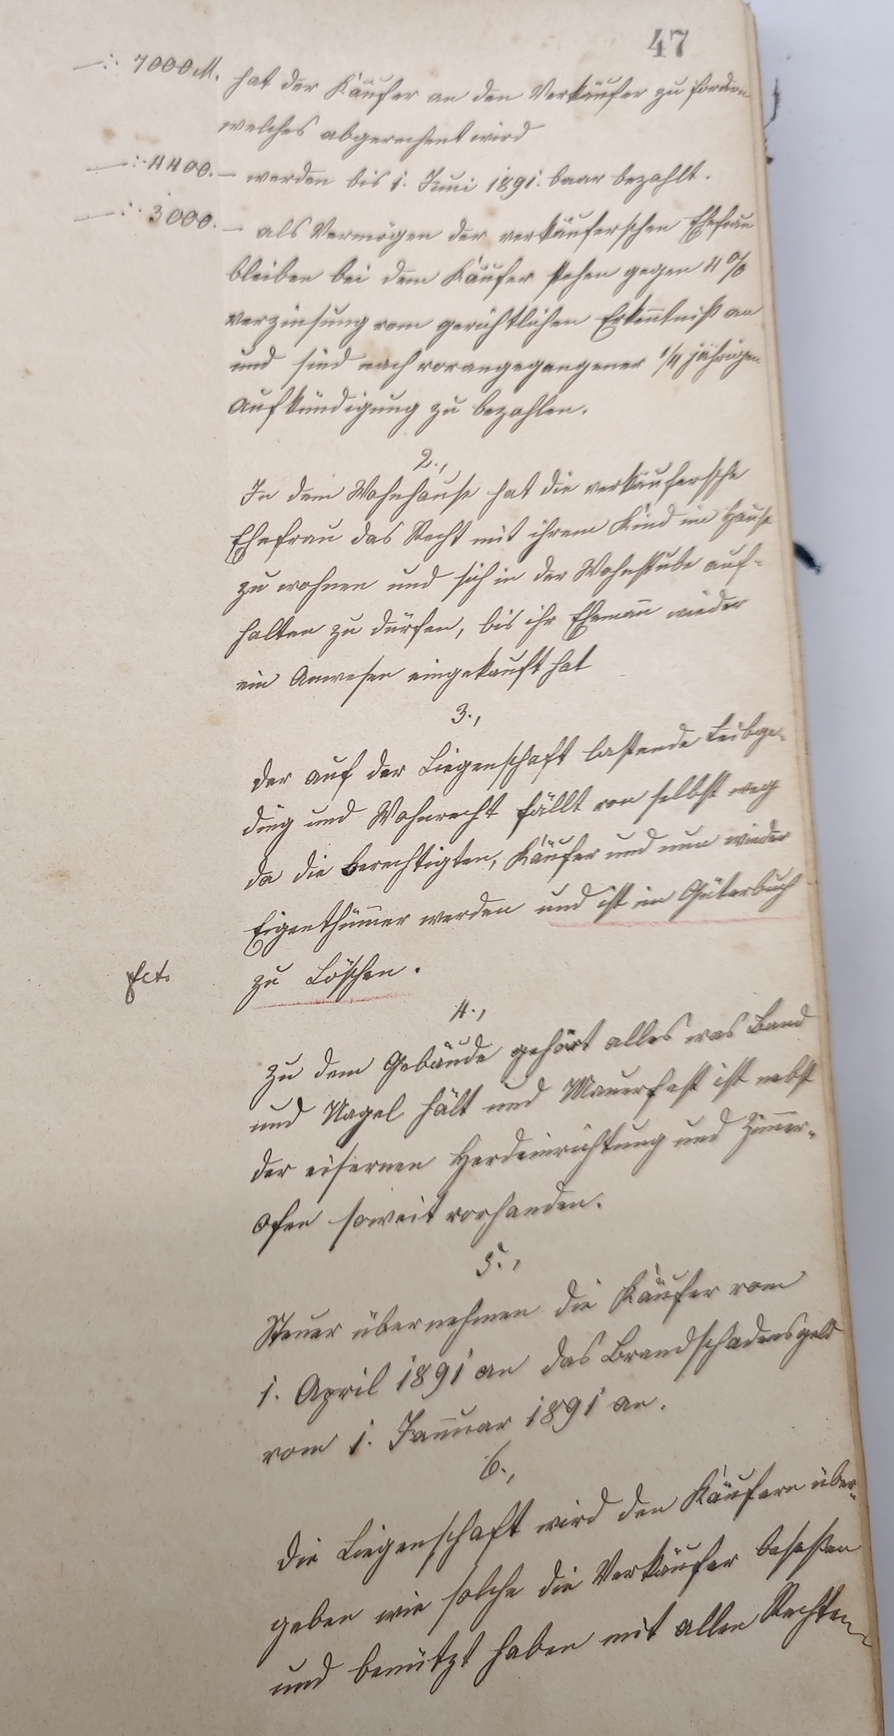 47
—:· 7000 M. hat der Käufer an den Verkäufer zu fordern
welches abgerechent wird
—:· 4400. – werden bis 1. Juni 1891. baar bezahlt.
—:· 3000. – als Vermögen der verkäuferschen Ehefrau
bleiben bei dem Käufer stehen gegen 4 %
verzinsung vom gerichtlichen Erkenntniß an
und sind nach vorangegangener 1/4 jährigen
Aufkündigung zu bezahlen.
2.,
In dem Wohnhause hat die verkäufersche
Ehefrau das Recht mit ihrem Kind im Hause
zu wohnen und sich in der Wohnstube auf-
halten zu dürfen, bis ihr Ehemann wieder
ein Anwesen eingekauft hat
3.,
Der auf der Liegenschaft lastende Leibge-
ding und Wohnrecht fällt von selbst weg
da die berechtigten, Käufer und nun wieder
Eigenthümer werden und ist im Güterbuch
fct. zu Löschen.
4.,
Zu dem Gebäude gehört alles was Band
und Nagel hält und Mauerfest ist nebst
der eisernen Herdeinrichtung und Zimmer-
ofen soweit vorhanden.
5.,
Steuer übernehmen die Käufer vom
1. April 1891 an das Brandschadensgeld
vom 1. Januar 1891 an.
6.,
Die Liegenschaft wird den Käufern über-
geben wie solche die Verkäufer besessen
und benützt haben mit allen Rechten